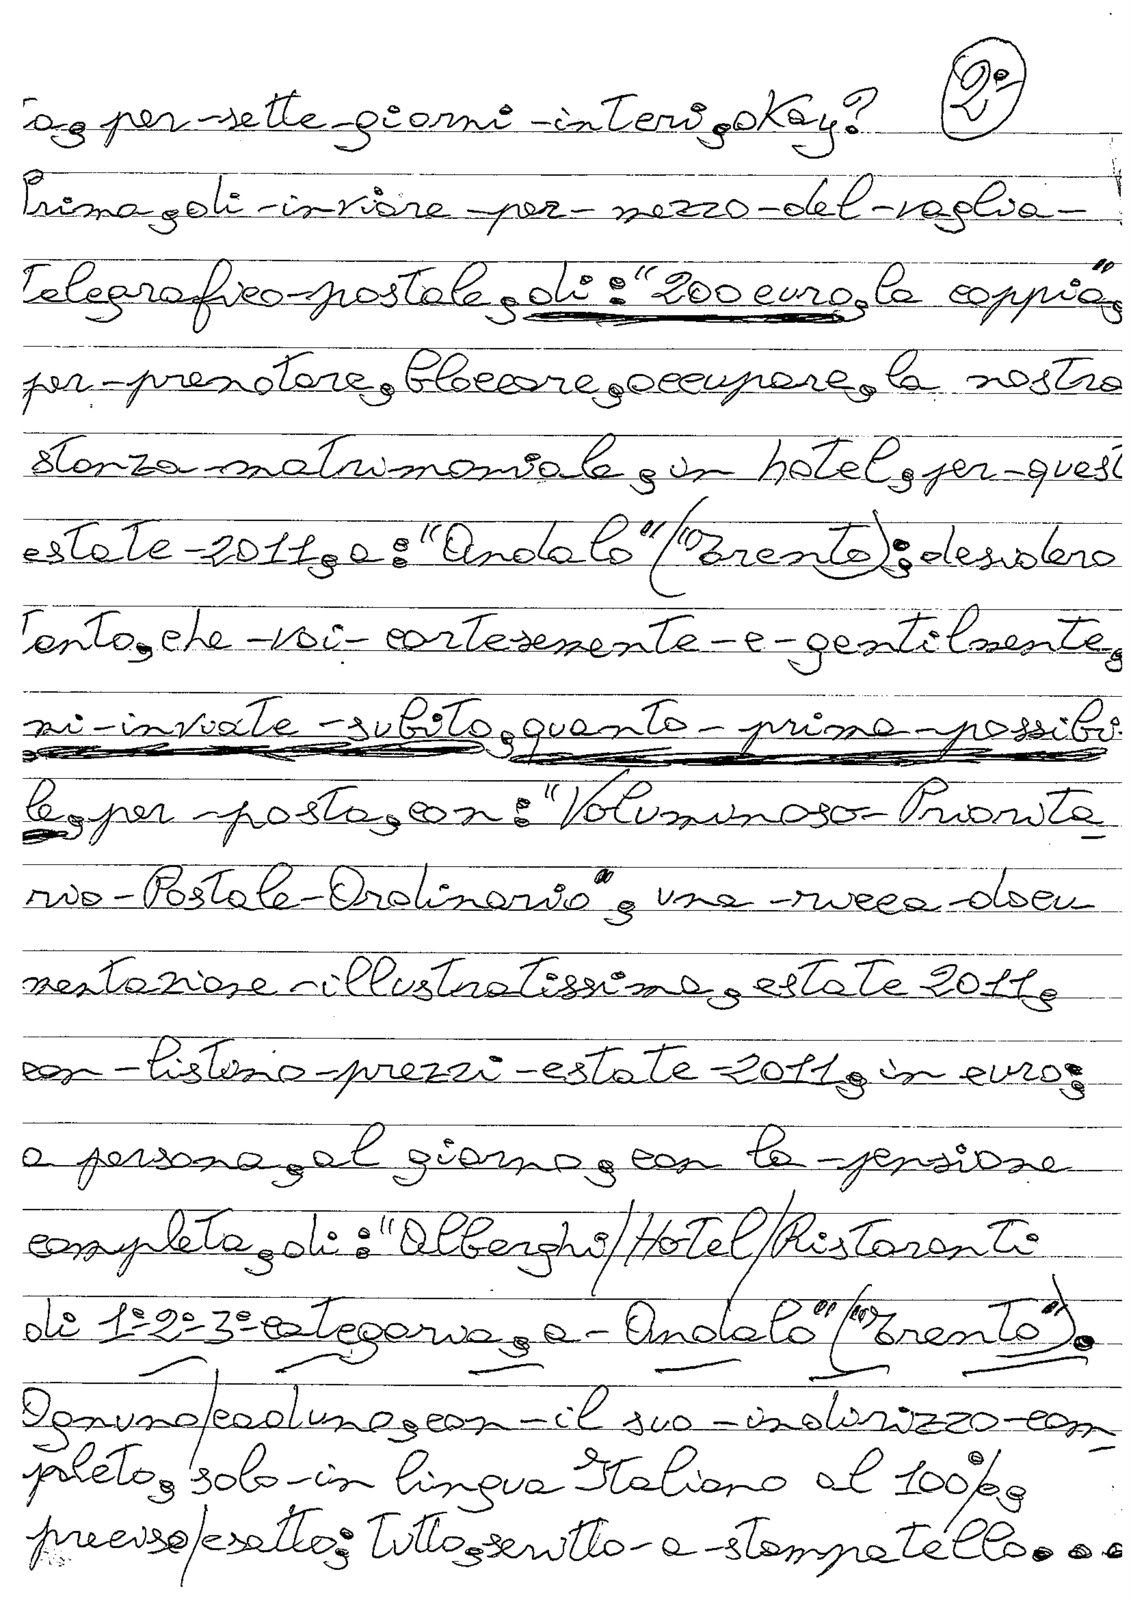 2º
ia, per-sette-giorni-interi, oKay?
Prima, di-inviare-per-mezzo-del-vaglia-
Telegrafico-postale, di: "200 euro, la coppia",
per-prenotare, bloccare, occupare, la nostra
stanza-matrimoniale, in hotel, per-quest
estate-2011, a: "Andalo" ("Trento"); desidero
Tanto, che-voi-cortesemente-e-gentilmente,
mi-inviate-subito, quanto-prima-possibi-
le, per-posta, con: "Voluminoso-Priorita
rio-Postale-Ordinario", una-ricca-docu
mentazione-illustratissima, estate 2011,
con-listino-prezzi-estate-2011, in euro;
a persona, al giorno, con la-pensione
completa, di: "Alberghi/Hotel/Ristoranti
di 1ª-2ª-3ª-categoria, a-Andalo" ("Trento").
Ognuno/caduno, con-il suo-indirizzo-com-
pleto, solo-in lingua Italiana al 100%,
preciso/esatto; Tutto, scritto-a-stampatello...